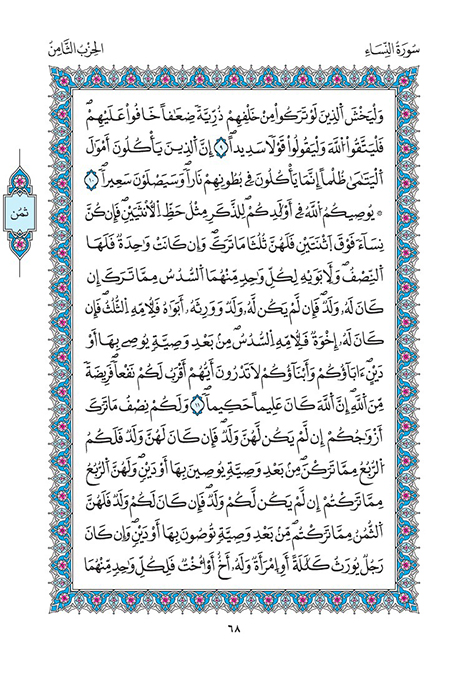 سُورَةُ النِّسَاءِ
الحِزْبُ الثَّامِنُ
وَلْيَخْشَ اَلذِينَ لَوْ تَرَكُواْ مِنْ خَلْفِهِمْ ذُرِّيَّةٗ ضِعَٰفاً خَافُواْ عَلَيْهِمْ
فَلْيَتَّقُواْ اُللَّهَ وَلْيَقُولُواْ قَوْلاٗ سَدِيداً ٩ إِنَّ اَلذِينَ يَأْكُلُونَ أَمْوَٰلَ
اَلْيَتَٰمَىٰ ظُلْماً اِنَّمَا يَأْكُلُونَ فِي بُطُونِهِمْ نَاراٗ وَسَيَصْلَوْنَ سَعِيراٗ ١٠
* يُوصِيكُمُ اُللَّهُ فِي أَوْلَٰدِكُمْ لِلذَّكَرِ مِثْلُ حَظِّ اِلْأُنثَيَيْنِ فَإِن كُنَّ
نِسَآءٗ فَوْقَ اَثْنَتَيْنِ فَلَهُنَّ ثُلُثَا مَا تَرَكَ وَإِن كَانَتْ وَٰحِدَةٞ فَلَهَا
اَلنِّصْفُ وَلِأَبَوَيْهِ لِكُلِّ وَٰحِدٖ مِّنْهُمَا اَلسُّدُسُ مِمَّا تَرَكَ إِن
كَانَ لَهُۥ وَلَدٞ فَإِن لَّمْ يَكُن لَّهُۥ وَلَدٞ وَوَرِثَهُۥ أَبَوَٰهُ فَلِأُمِّهِ اِلثُّلُثُ فَإِن
كَانَ لَهُۥ إِخْوَةٞ فَلِأُمِّهِ اِلسُّدُسُ مِنۢ بَعْدِ وَصِيَّةٖ يُوصِي بِهَا أَوْ
دَيْنٍ ءَابَآؤُكُمْ وَأَبْنَآؤُكُمْ لَا تَدْرُونَ أَيُّهُمْ أَقْرَبُ لَكُمْ نَفْعاٗ فَرِيضَةٗ
مِّنَ اَللَّهِ إِنَّ اَللَّهَ كَانَ عَلِيماً حَكِيماٗ ١١ وَلَكُمْ نِصْفُ مَا تَرَكَ
أَزْوَٰجُكُمْ إِن لَّمْ يَكُن لَّهُنَّ وَلَدٞ فَإِن كَانَ لَهُنَّ وَلَدٞ فَلَكُمُ
اُلرُّبُعُ مِمَّا تَرَكْنَ مِنۢ بَعْدِ وَصِيَّةٖ يُوصِينَ بِهَا أَوْ دَيْنٖ وَلَهُنَّ اَلرُّبُعُ
مِمَّا تَرَكْتُمْ إِن لَّمْ يَكُن لَّكُمْ وَلَدٞ فَإِن كَانَ لَكُمْ وَلَدٞ فَلَهُنَّ
اَلثُّمُنُ مِمَّا تَرَكْتُم مِّنۢ بَعْدِ وَصِيَّةٖ تُوصُونَ بِهَا أَوْ دَيْنٖ وَإِن كَانَ
رَجُلٞ يُورَثُ كَلَٰلَةً أَوِ اِمْرَأَةٞ وَلَهُۥ أَخٌ أَوْ أُخْتٞ فَلِكُلِّ وَٰحِدٖ مِّنْهُمَا
ثُمُن
٦٨